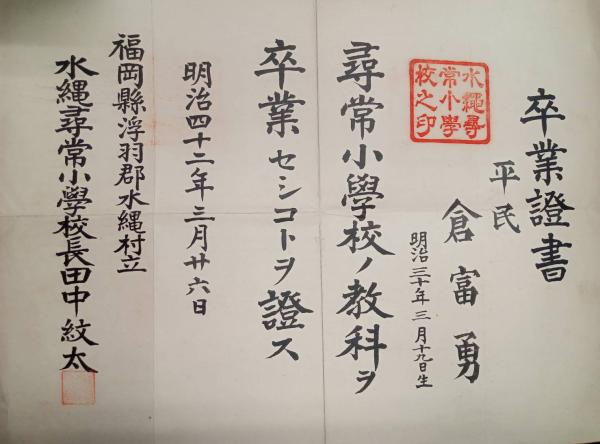 卒業證書
平民
倉富勇
明治三十年三月十九日生
水繩尋
常小學
校之印
尋常小學校ノ教科ヲ
卒業セシコトヲ證ス
明治四十二年三月廿六日
福岡縣浮羽郡水縄村立
水縄尋常小學校長田中紋太